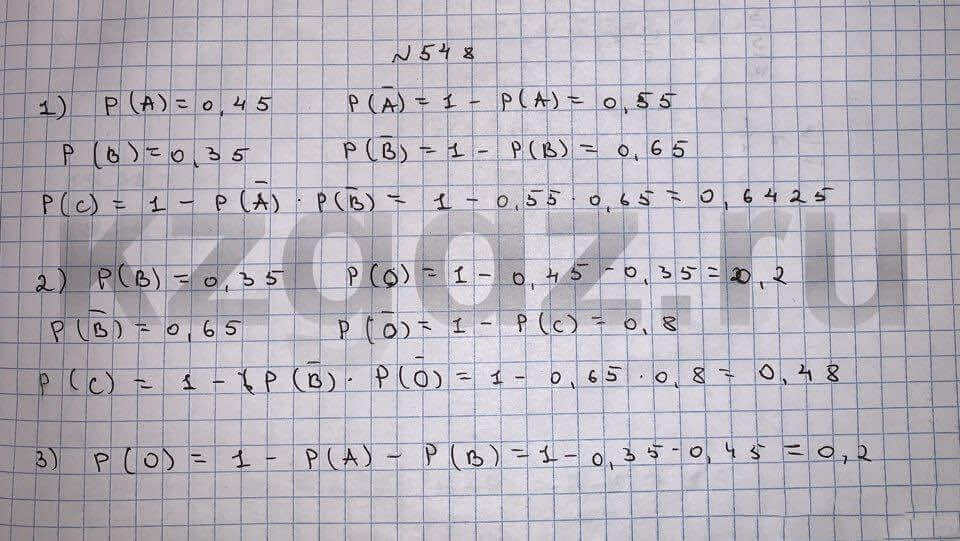 №548
1) P(A) = 0,45 P(Ā) = 1 - P(A) = 0,55
P(B) = 0,35 P(B̄) = 1 - P(B) = 0,65
P(C) = 1 - P(Ā) · P(B̄) = 1 - 0,55 · 0,65 = 0,6425
kzgdz.ru
2) P(B) = 0,35 P(O) = 1 - 0,45 - 0,35 = 0,2
P(B̄) = 0,65 P(Ō) = 1 - P(C) = 0,8
P(C) = 1 - P(B̄) · P(Ō) = 1 - 0,65 · 0,8 = 0,48
3) P(O) = 1 - P(A) - P(B) = 1 - 0,35 - 0,45 = 0,2